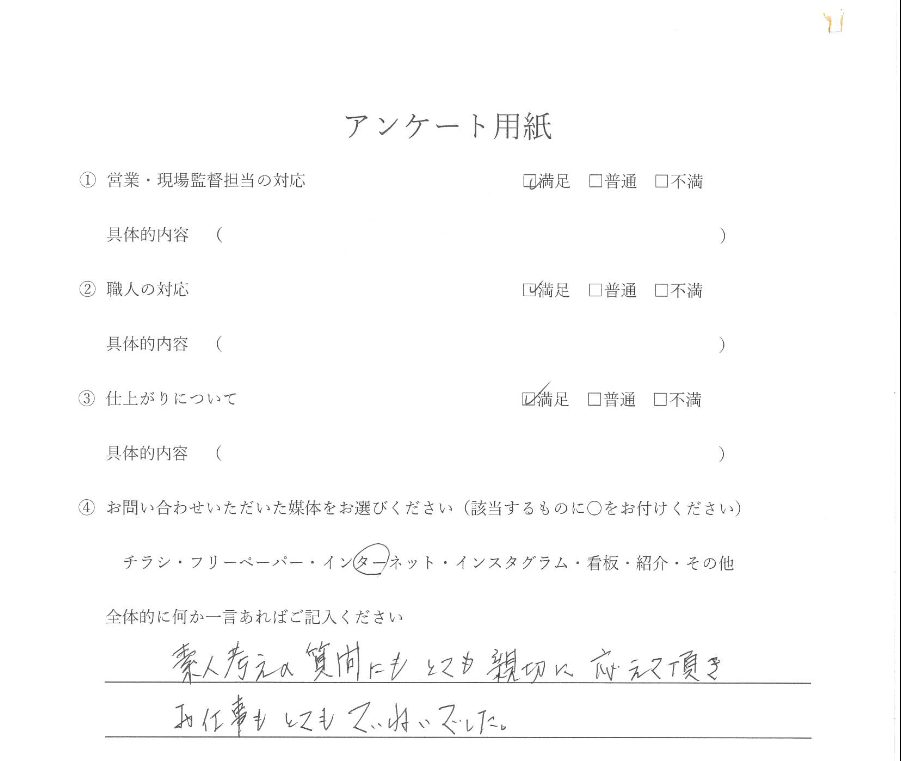 アンケート用紙
① 営業・現場監督担当の対応 ☑満足 □普通 □不満
具体的内容 （ ）
② 職人の対応 ☑満足 □普通 □不満
具体的内容 （ ）
③ 仕上がりについて ☑満足 □普通 □不満
具体的内容 （ ）
④ お問い合わせいただいた媒体をお選びください（該当するものに○をお付けください）
チラシ・フリーペーパー・インターネット・インスタグラム・看板・紹介・その他
全体的に何か一言あればご記入ください
素人考えの質問にもとても親切に応えて頂き
お仕事もとてもていねいでした。